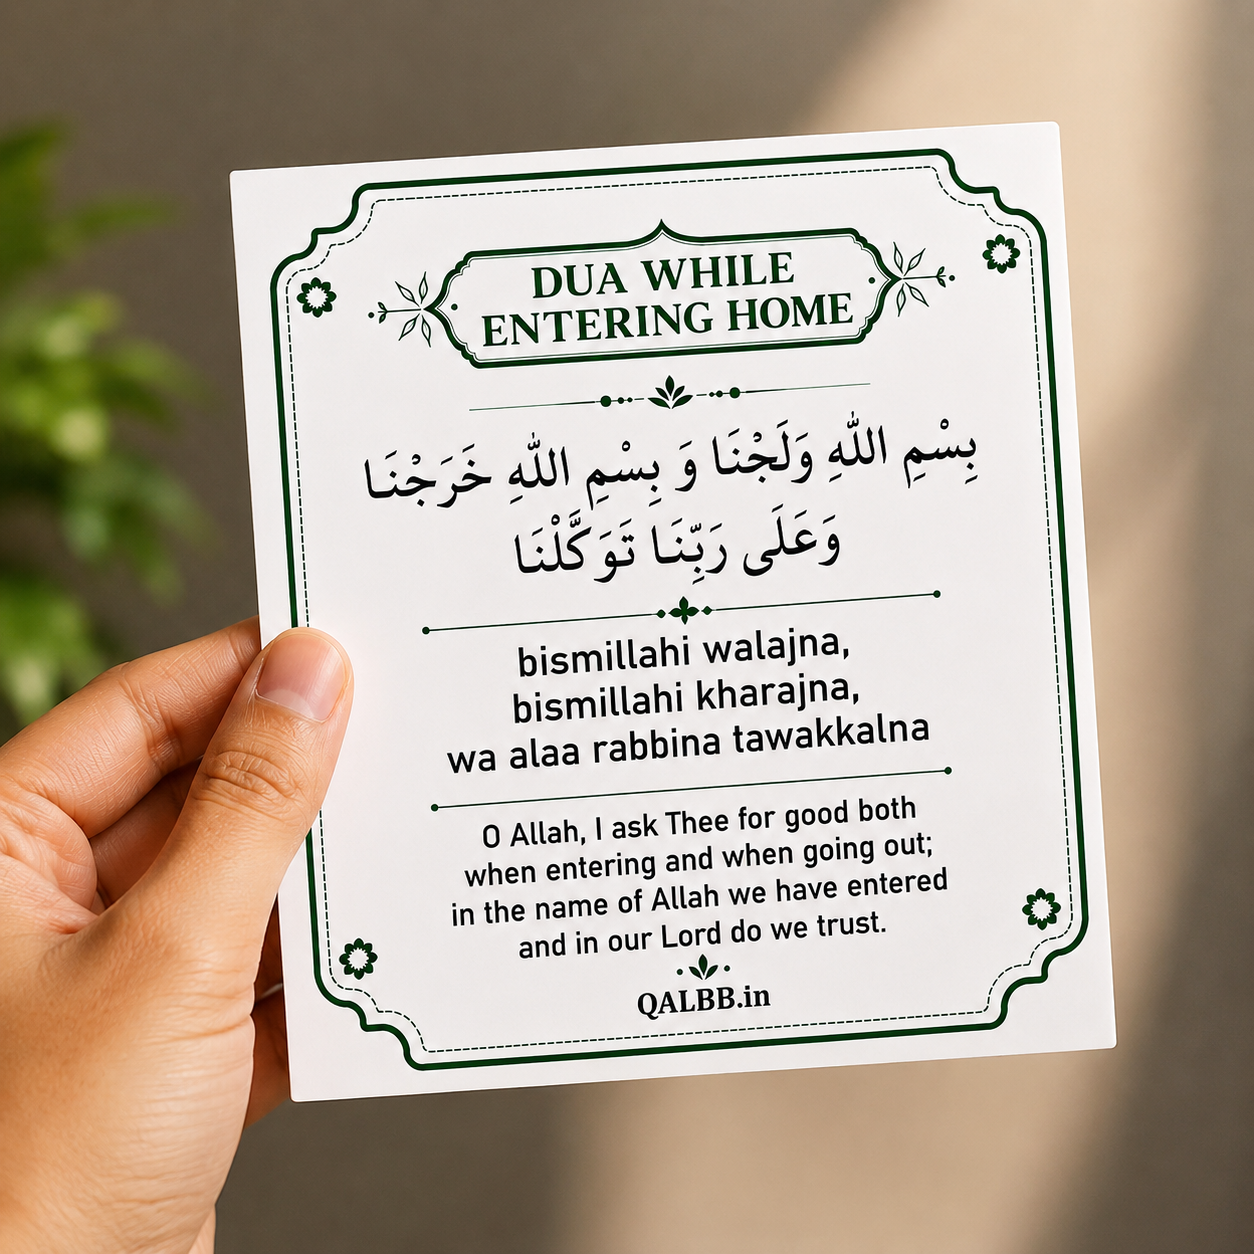 DUA WHILE
ENTERING HOME
بِسْمِ اللّٰهِ وَلَجْنَا وَ بِسْمِ اللّٰهِ خَرَجْنَا
وَعَلَى رَبِّنَا تَوَكَّلْنَا
bismillahi walajna,
bismillahi kharajna,
wa alaa rabbina tawakkalna
O Allah, I ask Thee for good both
when entering and when going out;
in the name of Allah we have entered
and in our Lord do we trust.
QALBB.in